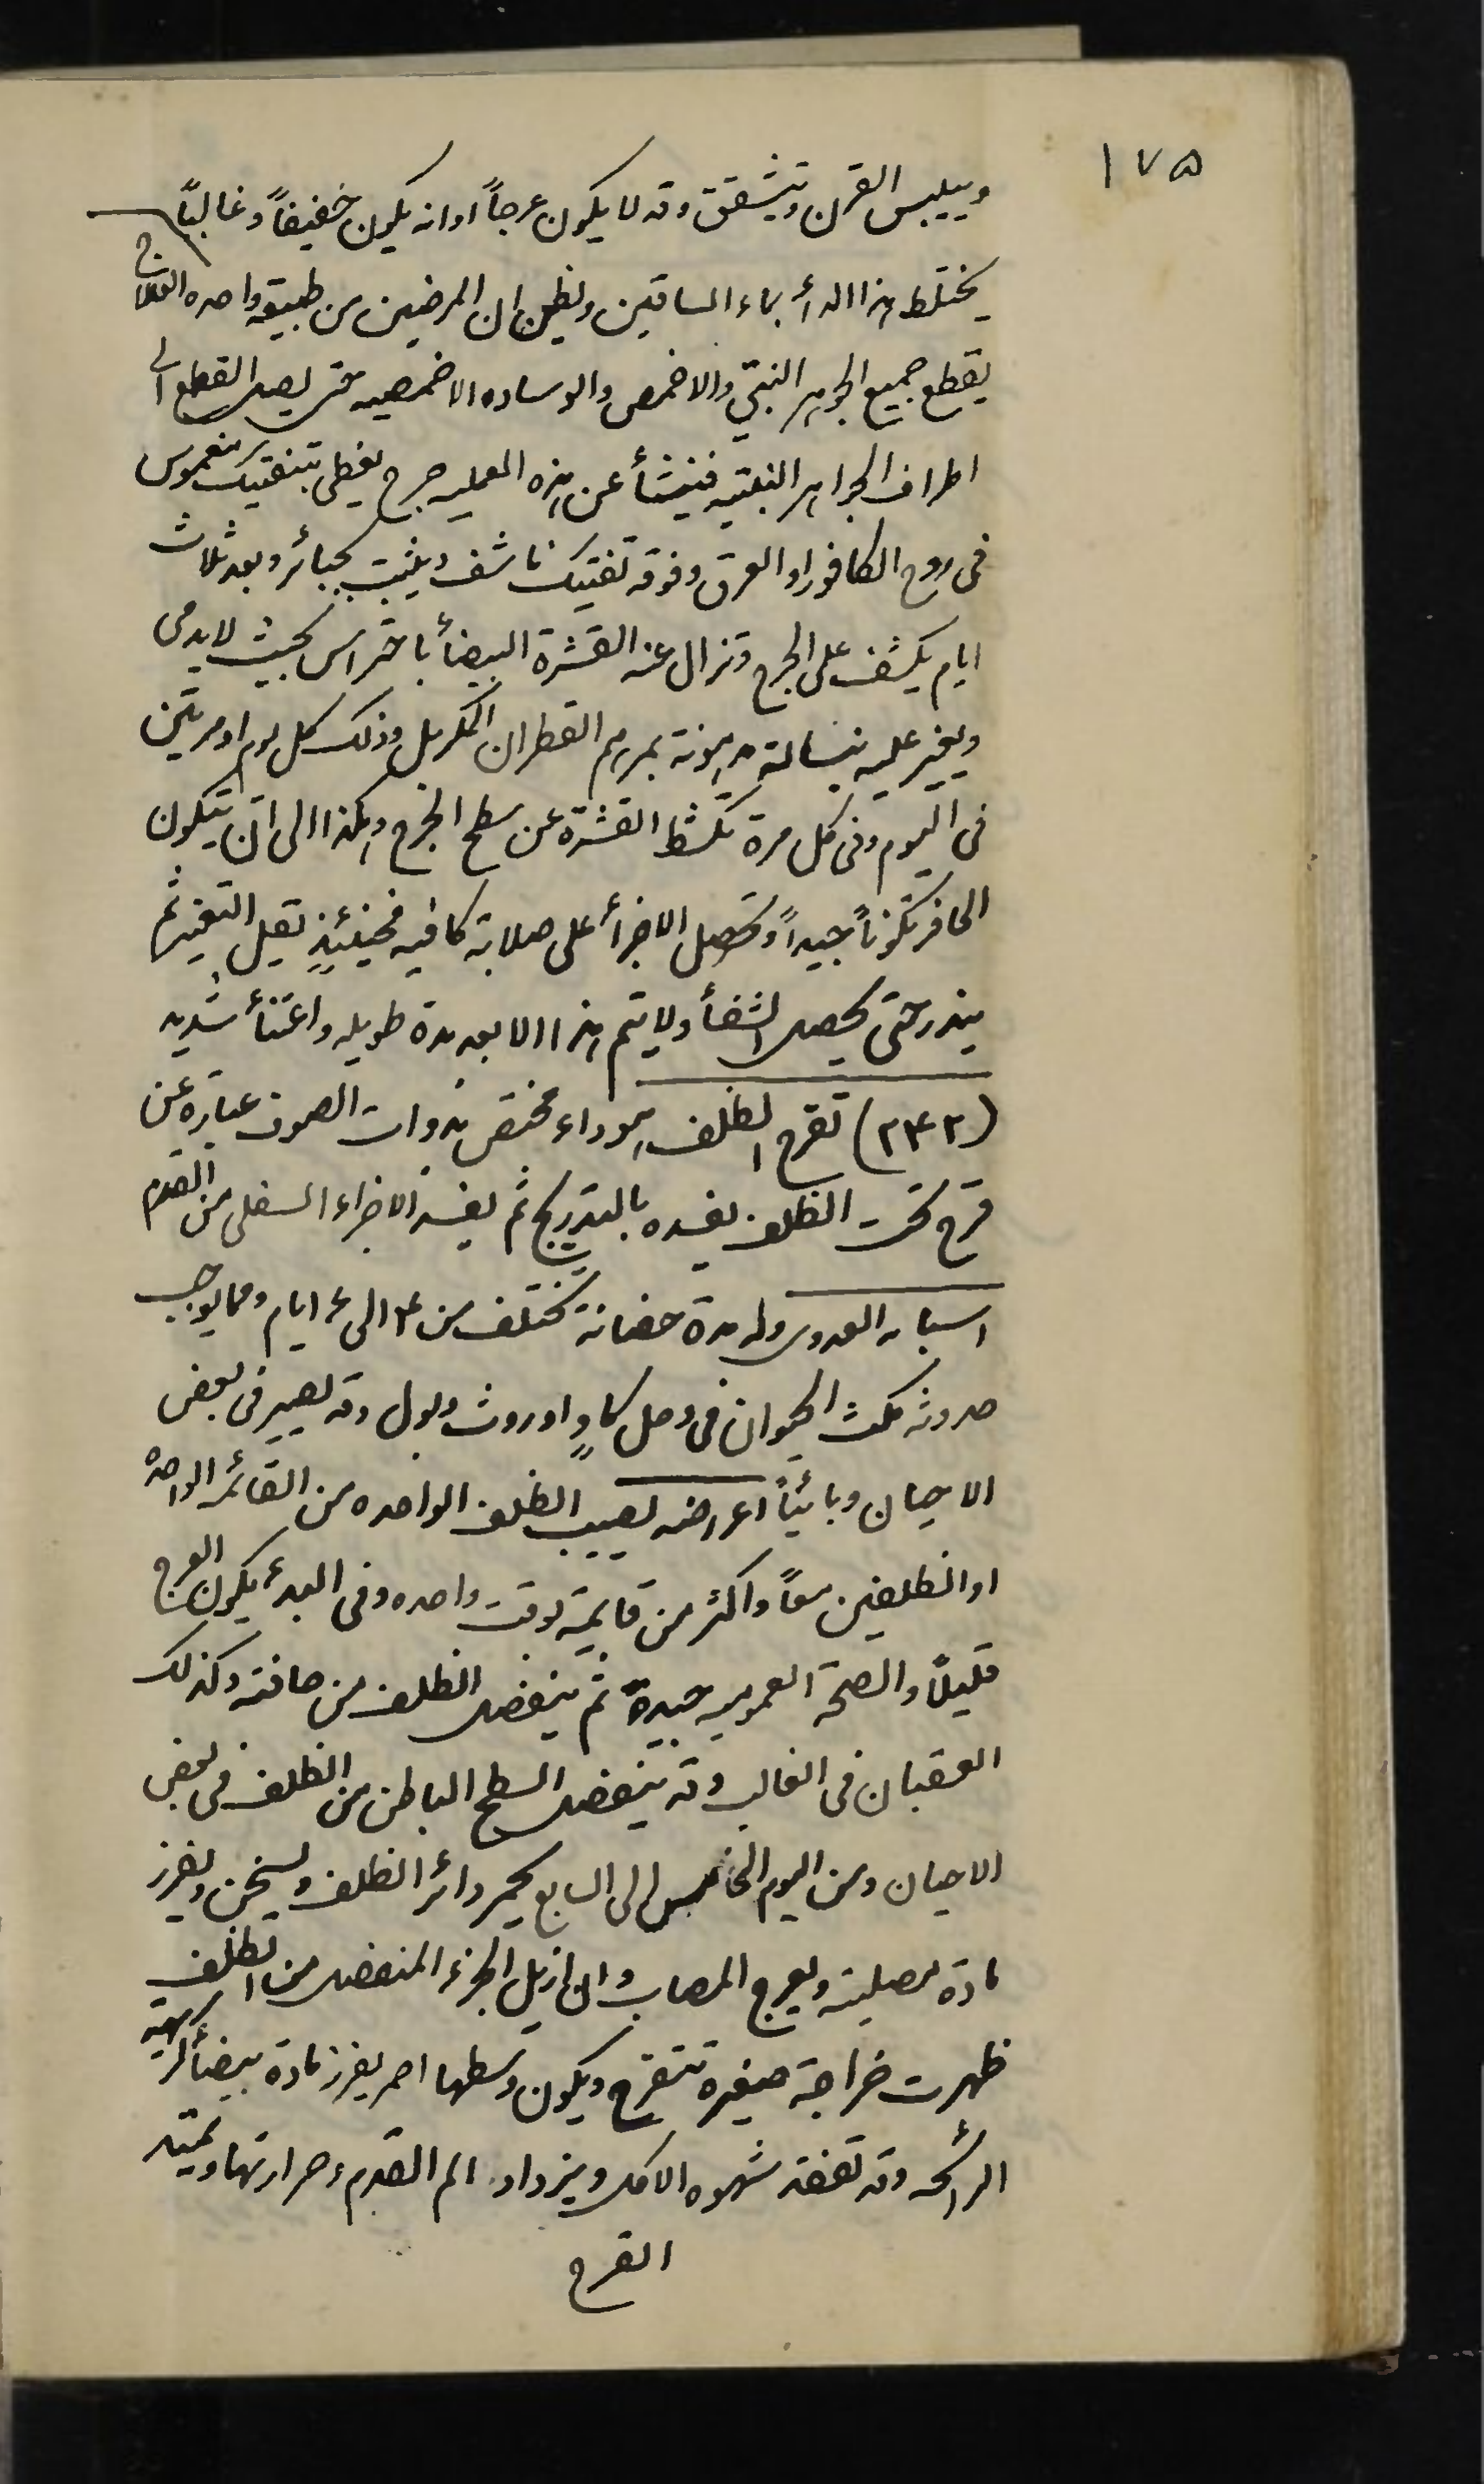 ١٧٥
وييبس القرن ويتشقق وقد لا يكون عرجاً او انه يكون خفيفاً وغالباً
يختلط هذا الدأ بماء الساقين ويظن ان المرضين من طبيعه واحده العلاج
يقطع جميع الجوهر النبتي والاخمص والوساده الاخمصيه حتى يصل القطع الى
اطراف الجواهر النبتيه فينشأ عن هذه العمليه جرح يغطى بتفتيك مغموس
فى روح الكافور او العرق وفوقه تفتيك ناشف ويثبت بجبائر وبعد ثلاث
ايام يكشف على الجرح وتزال عنه القشرة البيضأ باحتراس بحيث لا يدمى
ويغير عليه بنسالة مدهونة بمرهم القطران المكربل وذلك كل يوم او مرتين
فى اليوم وفى كل مرة تكشط القشرة عن سطح الجرح وهكذا الى ان يتكون
الحافر تكوناً جيداً وتحصل الاجزأ على صلابة كافيه فحينئذٍ يقلل التغيير ثم
يندر حتى يحصل الشفأ ولا يتم هذا الا بعد مدة طويله واعتنأ شديد
(٢٤٢) تقرح الظلف هو داء مختص بذوات الصوف عبارة عن
قرح تحت الظلف يفسده بالتدريج ثم يفسد الاجزاء السفلى من القدم
اسبابه العدوى وله مدة حضانة تختلف من ٣ الى ٤ ايام ومما يوجب
حدوثه مكث الحيوان فى وحل كاوٍ او روث وبول وقد يصير فى بعض
الاحيان وبائياً اعراضه يصيب الظلف الواحده من القائمه الواحده
او الظلفين معاً واكثر من قايمة بوقت واحده وفى البدء يكون العرج
قليلاً والصحة العموميه جيدة ثم ينفصل الظلف من حافته وكذلك
العقبان فى الغالب وقد ينفصل السطح الباطن من الظلف فى بعض
الاحيان ومن اليوم الخامس الى السابع يحمر دائر الظلف ويسخن ويفرز
مادة مصلية ويعرج المصاب وان ازيل الجزء المنفصل من الظلف
ظهرت خراجة صغيره تتقرح ويكون وسطها احمر يفرز مادة بيضأ كريهة
الرائحه وقد تفقد شهوه الاكل ويزداد الم القدم وحرارتها ويمتد
القرح